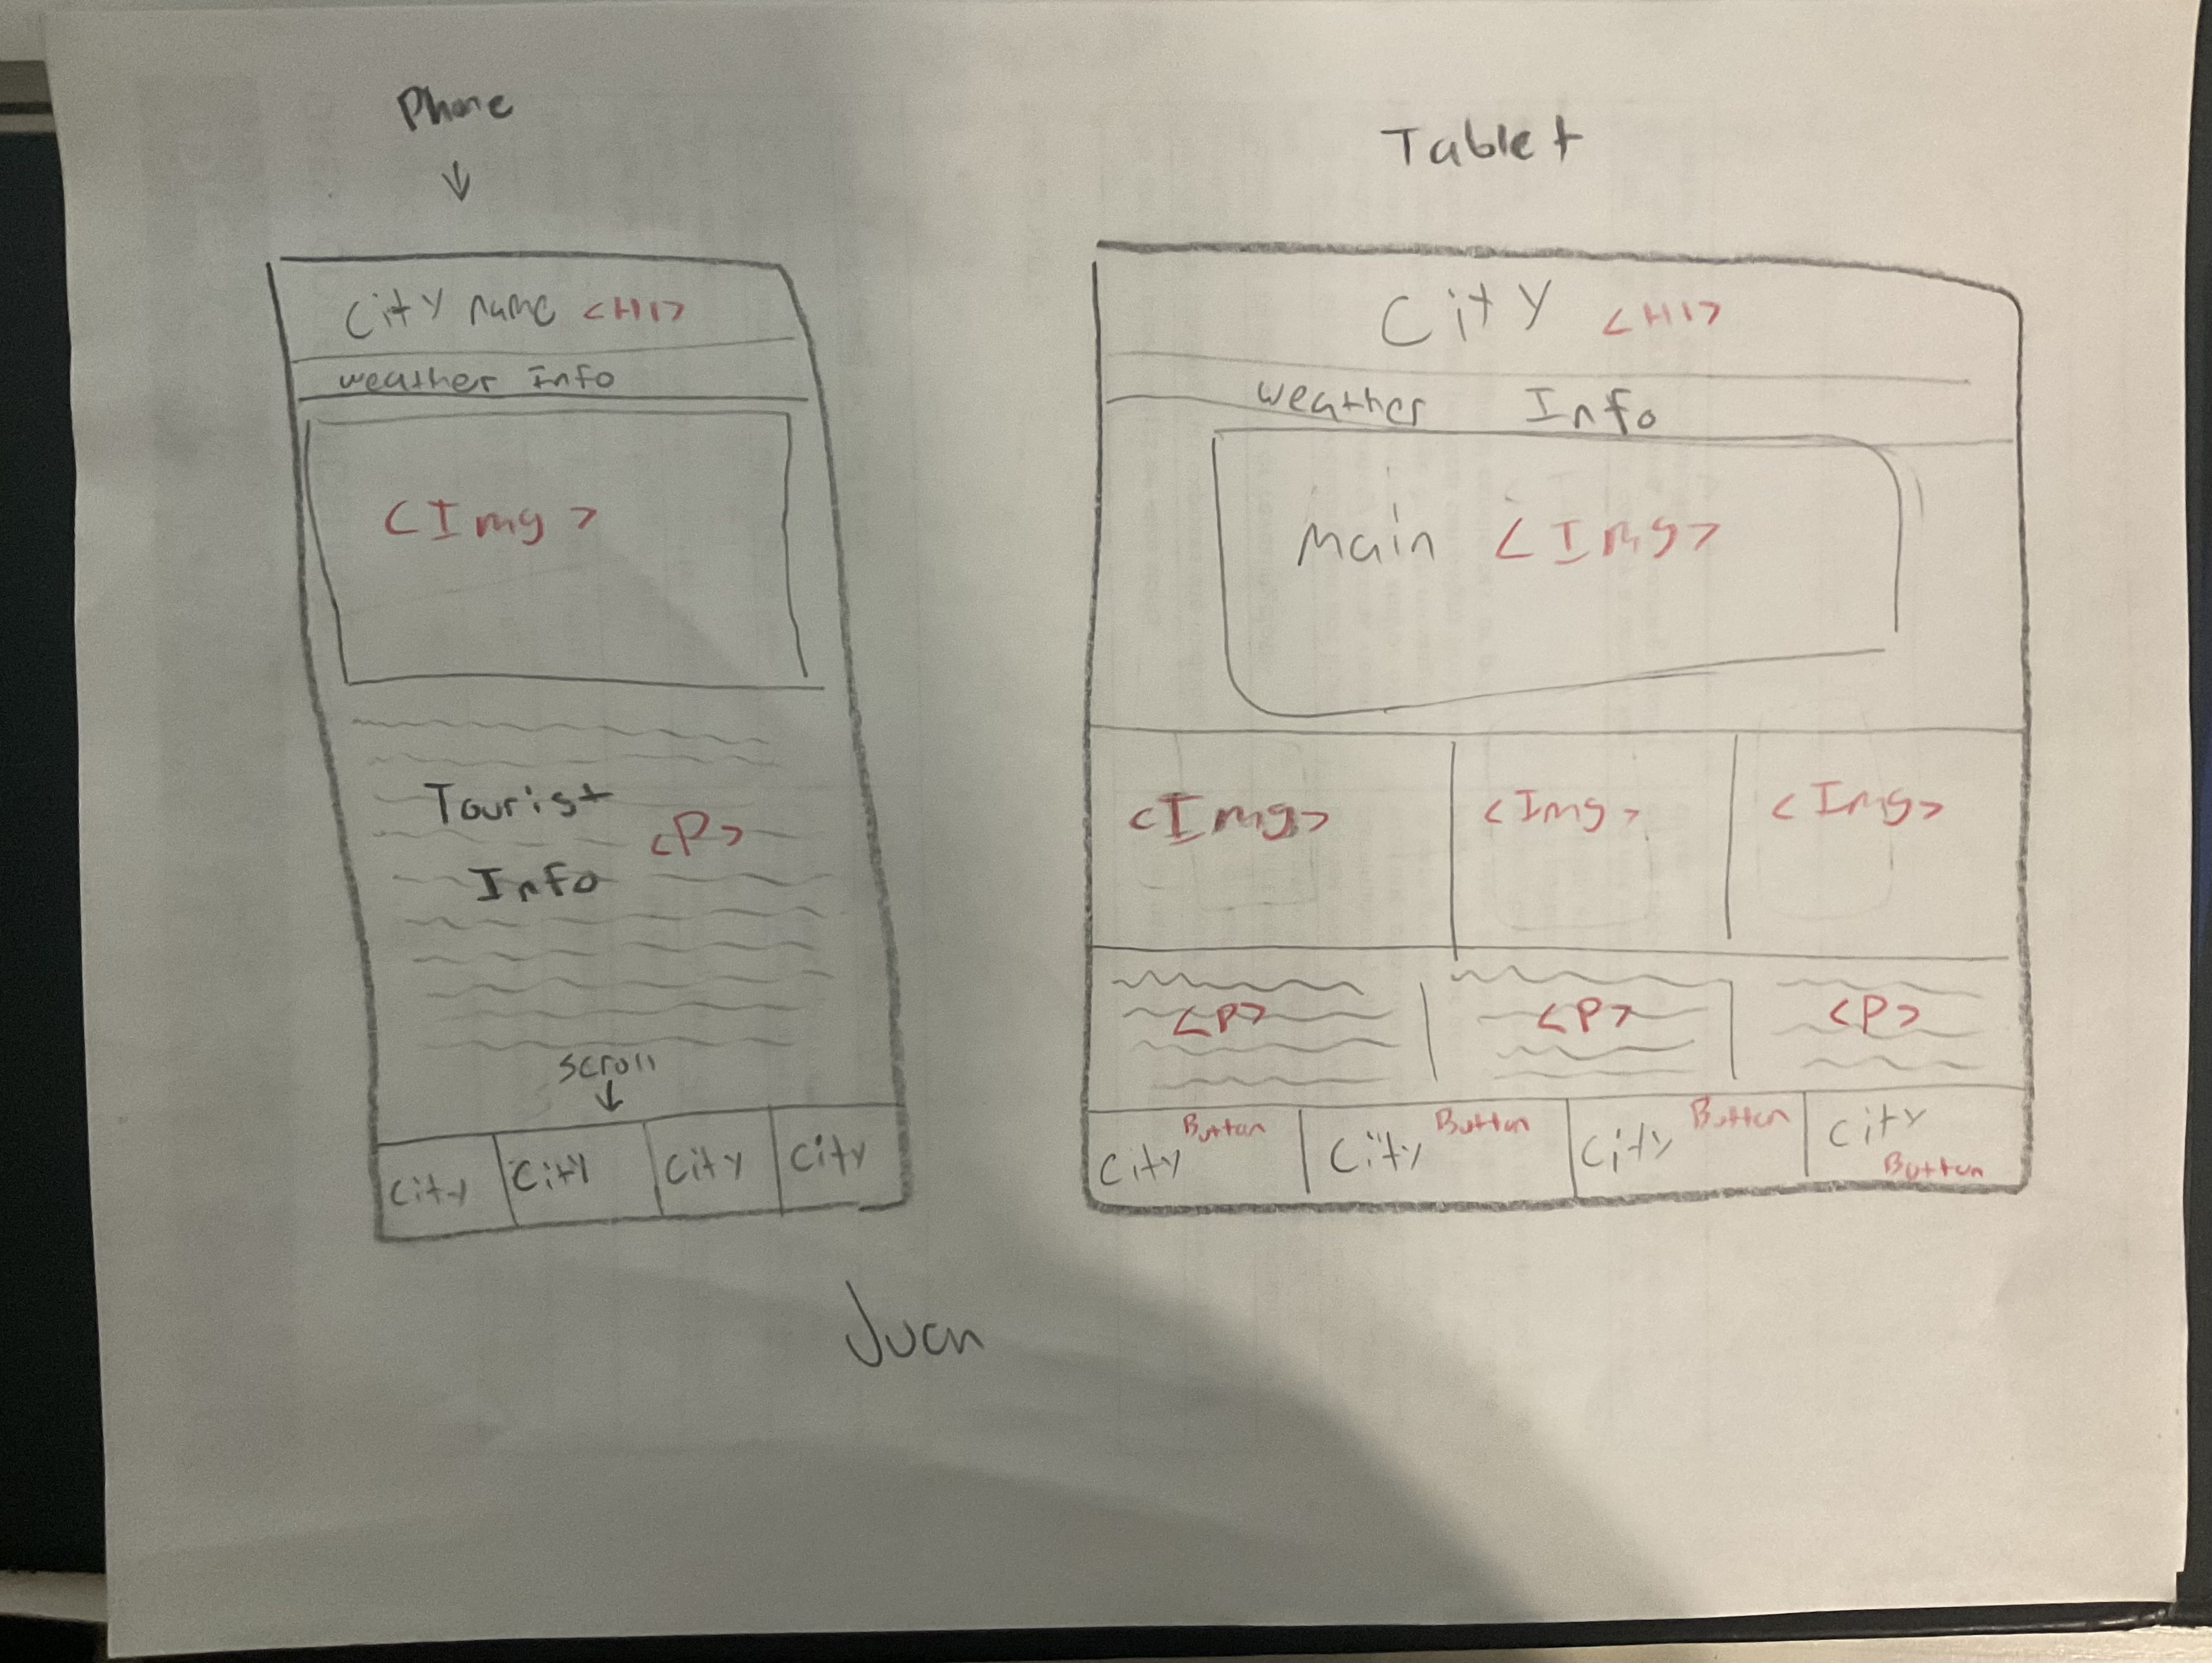 Phone
City name <H1>
weather Info
<Img>
Tourist
<P>
Info
scroll
City
City
City
City
Tablet
City <H1>
weather Info
Main <Img>
<Img>
<Img>
<Img>
<P>
<P>
<P>
City Button
City Button
City Button
City
Button
Juan